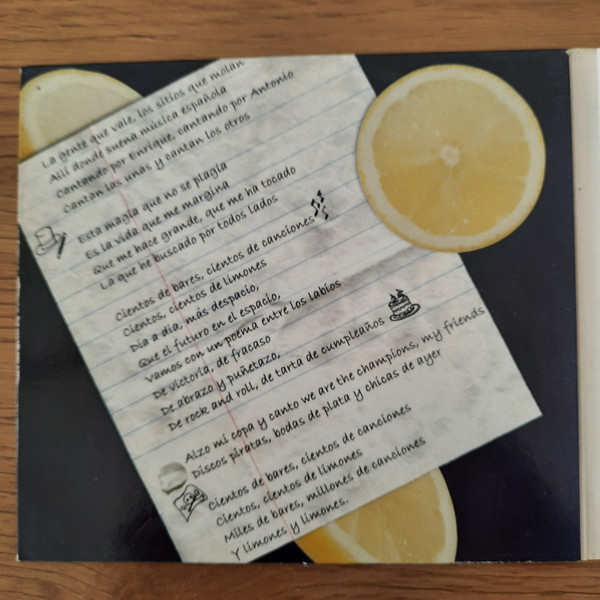 La gente que vale, los sitios que molan
Allí donde suena música española
Cantando por Enrique, cantando por Antonio
Cantan las unas y cantan los otros
Esta magia que no se plagia
Es la vida que me margina
Que me hace grande, que me ha tocado
La que he buscado por todos lados
Cientos de bares, cientos de canciones
Cientos, cientos de limones
Día a día, más despacio,
Que el futuro en el espacio,
Vamos con un poema entre los labios
De victoria, de fracaso
De abrazo y puñetazo,
De rock and roll, de tarta de cumpleaños
Alzo mi copa y canto we are the champions, my friends
Discos piratas, bodas de plata y chicas de ayer
Cientos de bares, cientos de canciones
Cientos, cientos de limones
Miles de bares, millones de canciones
Y limones y limones.